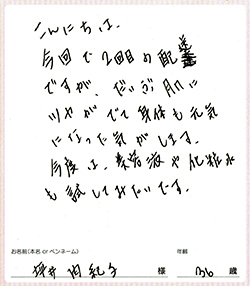 こんにちは。
今回で2回目の配送
ですが、だいぶ肌に
ツヤがでて身体も元気
になった気がします。
今度は、美容液や化粧水
も試してみたいです。
お名前(本名 or ペンネーム) 年齢
様 36 歳